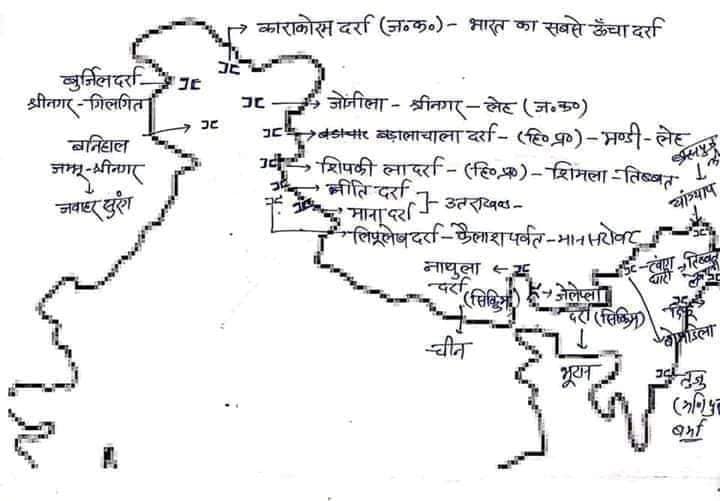 काराकोरम दर्रा (ज॰क॰) - भारत का सबसे ऊँचा दर्रा
बुर्जिल दर्रा
श्रीनगर - गिलगित
जोजीला - श्रीनगर - लेह (ज॰क॰)
बनिहाल
जम्मू - श्रीनगर
जवाहर सुरंग
बड़ालाचाला दर्रा - (हि॰प्र॰) - मण्डी - लेह
शिपकी ला दर्रा - (हि॰प्र॰) - शिमला - तिब्बत
नीति दर्रा
माना दर्रा
उत्तराखण्ड -
लिपूलेख दर्रा - कैलाश पर्वत - मानसरोवर
नाथुला
दर्रा
(सिक्किम)
चीन
जेलेप्ला
दर्रा (सिक्किम)
भूटान
यांग्याप
तवांग
घाटी
तिब्बत
बोमडिला
तुजु
बर्मा